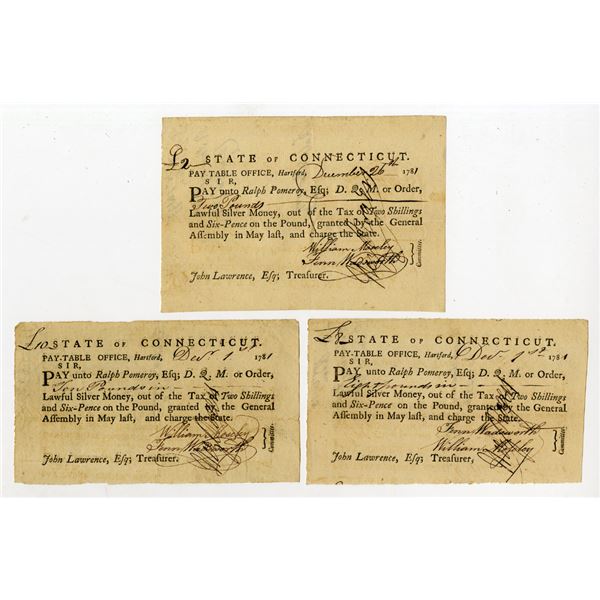 £2 STATE OF CONNECTICUT.
PAY-TABLE OFFICE, Hartford, December 26th 1781
SIR,
PAY unto Ralph Pomeroy, Esq; D. Q. M. or Order,
Two Pounds
Lawful Silver Money, out of the Tax of Two Shillings
and Six-Pence on the Pound, granted by the General
Assembly in May last, and charge the State.
William Moseley
Fenn Wadsworth
Committee.
John Lawrence, Esq; Treasurer.
£10 STATE OF CONNECTICUT.
PAY-TABLE OFFICE, Hartford, Decr 1st 1781
SIR,
PAY unto Ralph Pomeroy, Esq; D. Q. M. or Order,
Ten Pounds in
Lawful Silver Money, out of the Tax of Two Shillings
and Six-Pence on the Pound, granted by the General
Assembly in May last, and charge the State.
William Moseley
Fenn Wadsworth
Committee.
John Lawrence, Esq; Treasurer.
£8 STATE OF CONNECTICUT.
PAY-TABLE OFFICE, Hartford, Decr 1st 1781
SIR,
PAY unto Ralph Pomeroy, Esq; D. Q. M. or Order,
Eight pounds in
Lawful Silver Money, out of the Tax of Two Shillings
and Six-Pence on the Pound, granted by the General
Assembly in May last, and charge the State.
Fenn Wadsworth
William Moseley
Committee.
John Lawrence, Esq; Treasurer,